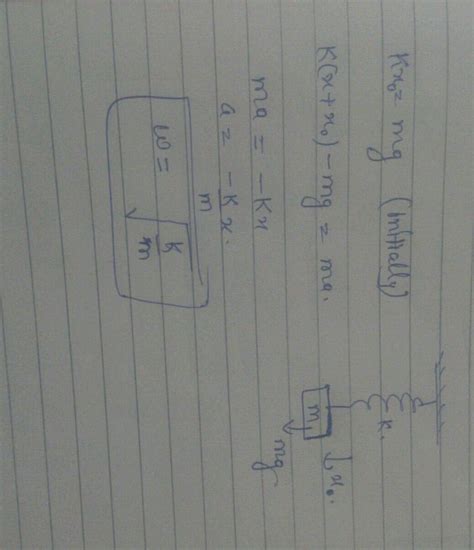 Kx₀ = mg (Initially)
K(x+x₀) - mg = ma.
ma = -Kx
a = -K/m x.
ω = √(K/m)
K.
m
x₀.
mg.